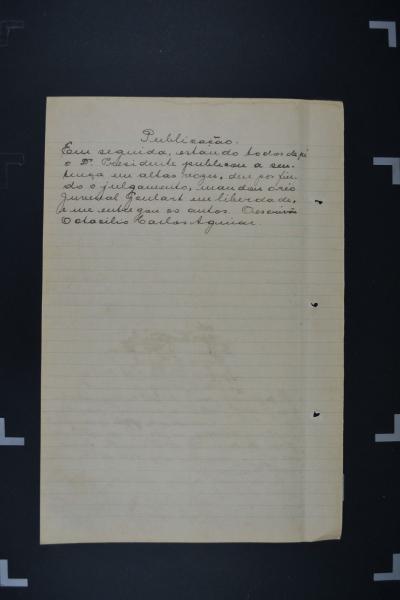 Publicação.
Em seguida, estando todos de pé
o Dr. Presidente publicou a sen-
tença em altas vozes, deu por fin-
do o julgamento, mandou o réo
Juvenal Goulart em liberdade,
e me entregou os autos. O escrivão
Octacilio Carlos Aguiar.